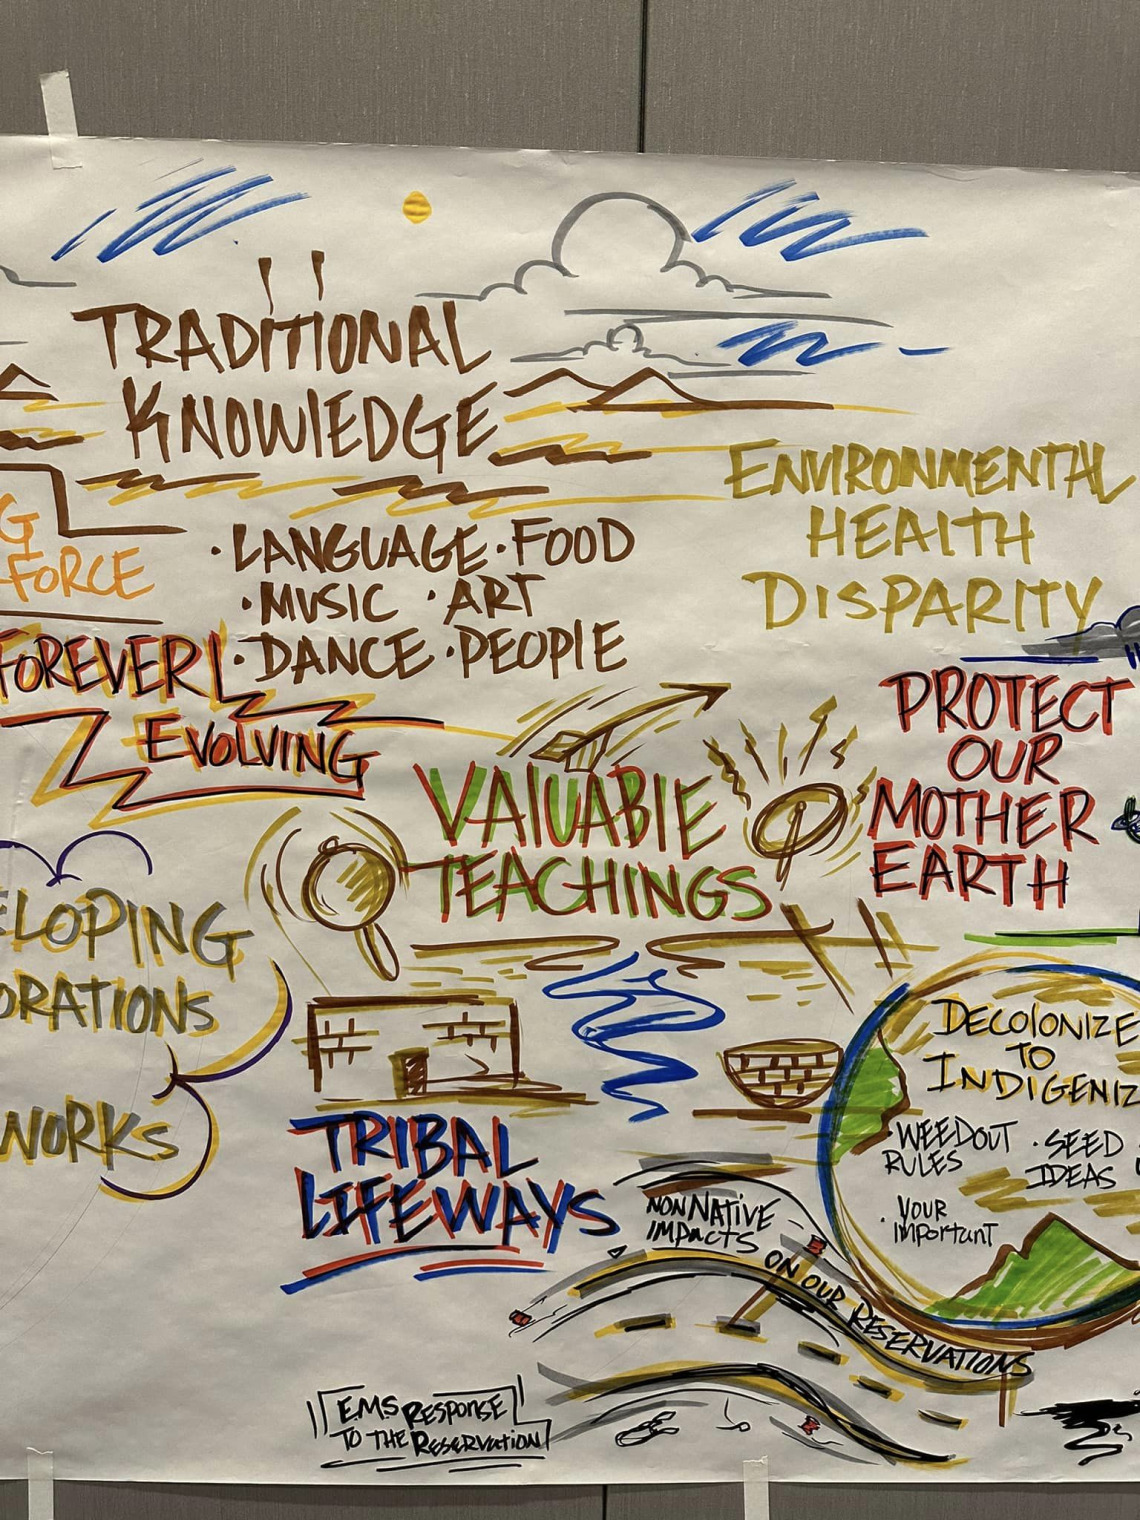 TRADITIONAL
KNOWLEDGE
· LANGUAGE · FOOD
· MUSIC · ART
· DANCE · PEOPLE
ENVIRONMENTAL
HEALTH
DISPARITY
G
FORCE
FOREVER
EVOLVING
VALUABLE
TEACHINGS
PROTECT
OUR
MOTHER
EARTH
ELOPING
ORATIONS
WORKS
DECOLONIZE
TO
INDIGENIZ
· WEEDOUT
RULES
· SEED
IDEAS
· YOUR
IMPORTANT
TRIBAL
LIFEWAYS
NON NATIVE
IMPACTS
ON OUR RESERVATIONS
E.M.S RESPONSE
TO THE RESERVATION